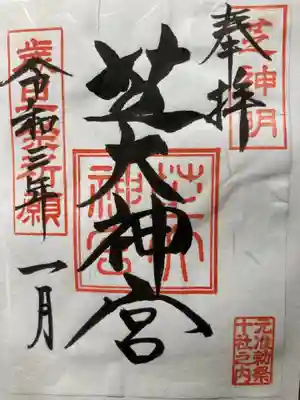 芝神明
奉拝
元准勅祭
十社之内
芝大神宮
芝大
神宮
令和三年
一月
祈願